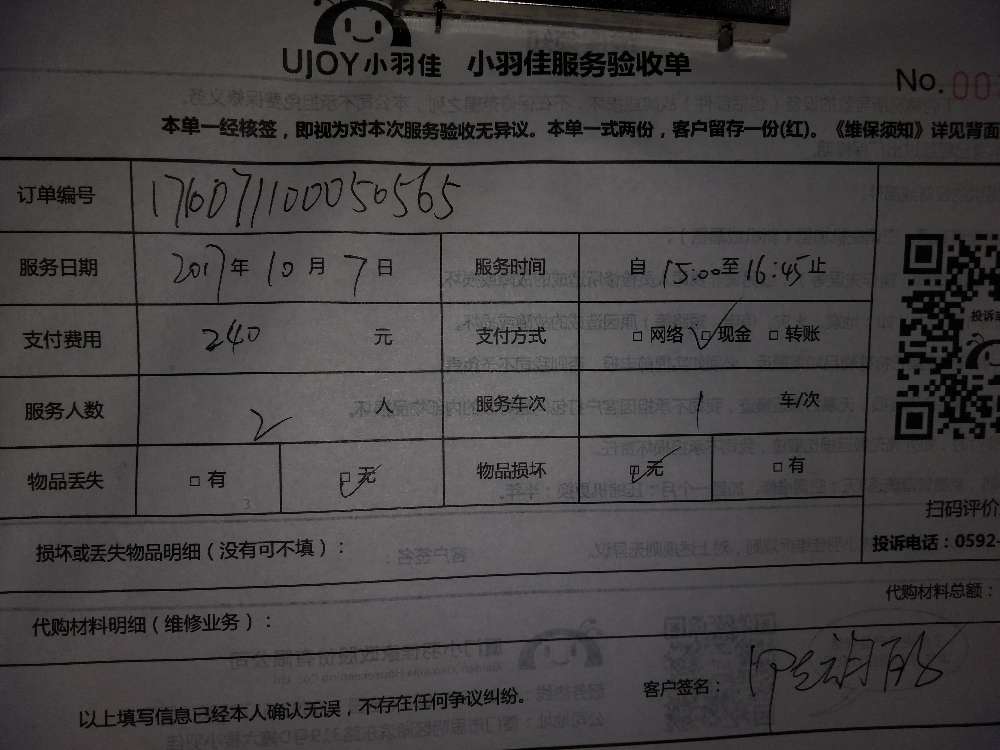 UJOY小羽佳 小羽佳服务验收单
No. 00
本单一经核签，即视为对本次服务验收无异议。本单一式两份，客户留存一份(红)。《维保须知》详见背面
订单编号 176071100050565
服务日期 2017年 10月 7日 服务时间 自 15:00至16:45止
支付费用 240 元 支付方式 □ 网络 □ 现金 □ 转账
服务人数 2 人 服务车次 1 车/次
物品丢失 □ 有 □ 无 物品损坏 □ 无 □ 有
扫码评价
损坏或丢失物品明细（没有可不填）：
投诉电话：0592-
代购材料总额：
代购材料明细（维修业务）：
客户签名：
以上填写信息已经本人确认无误，不存在任何争议纠纷。